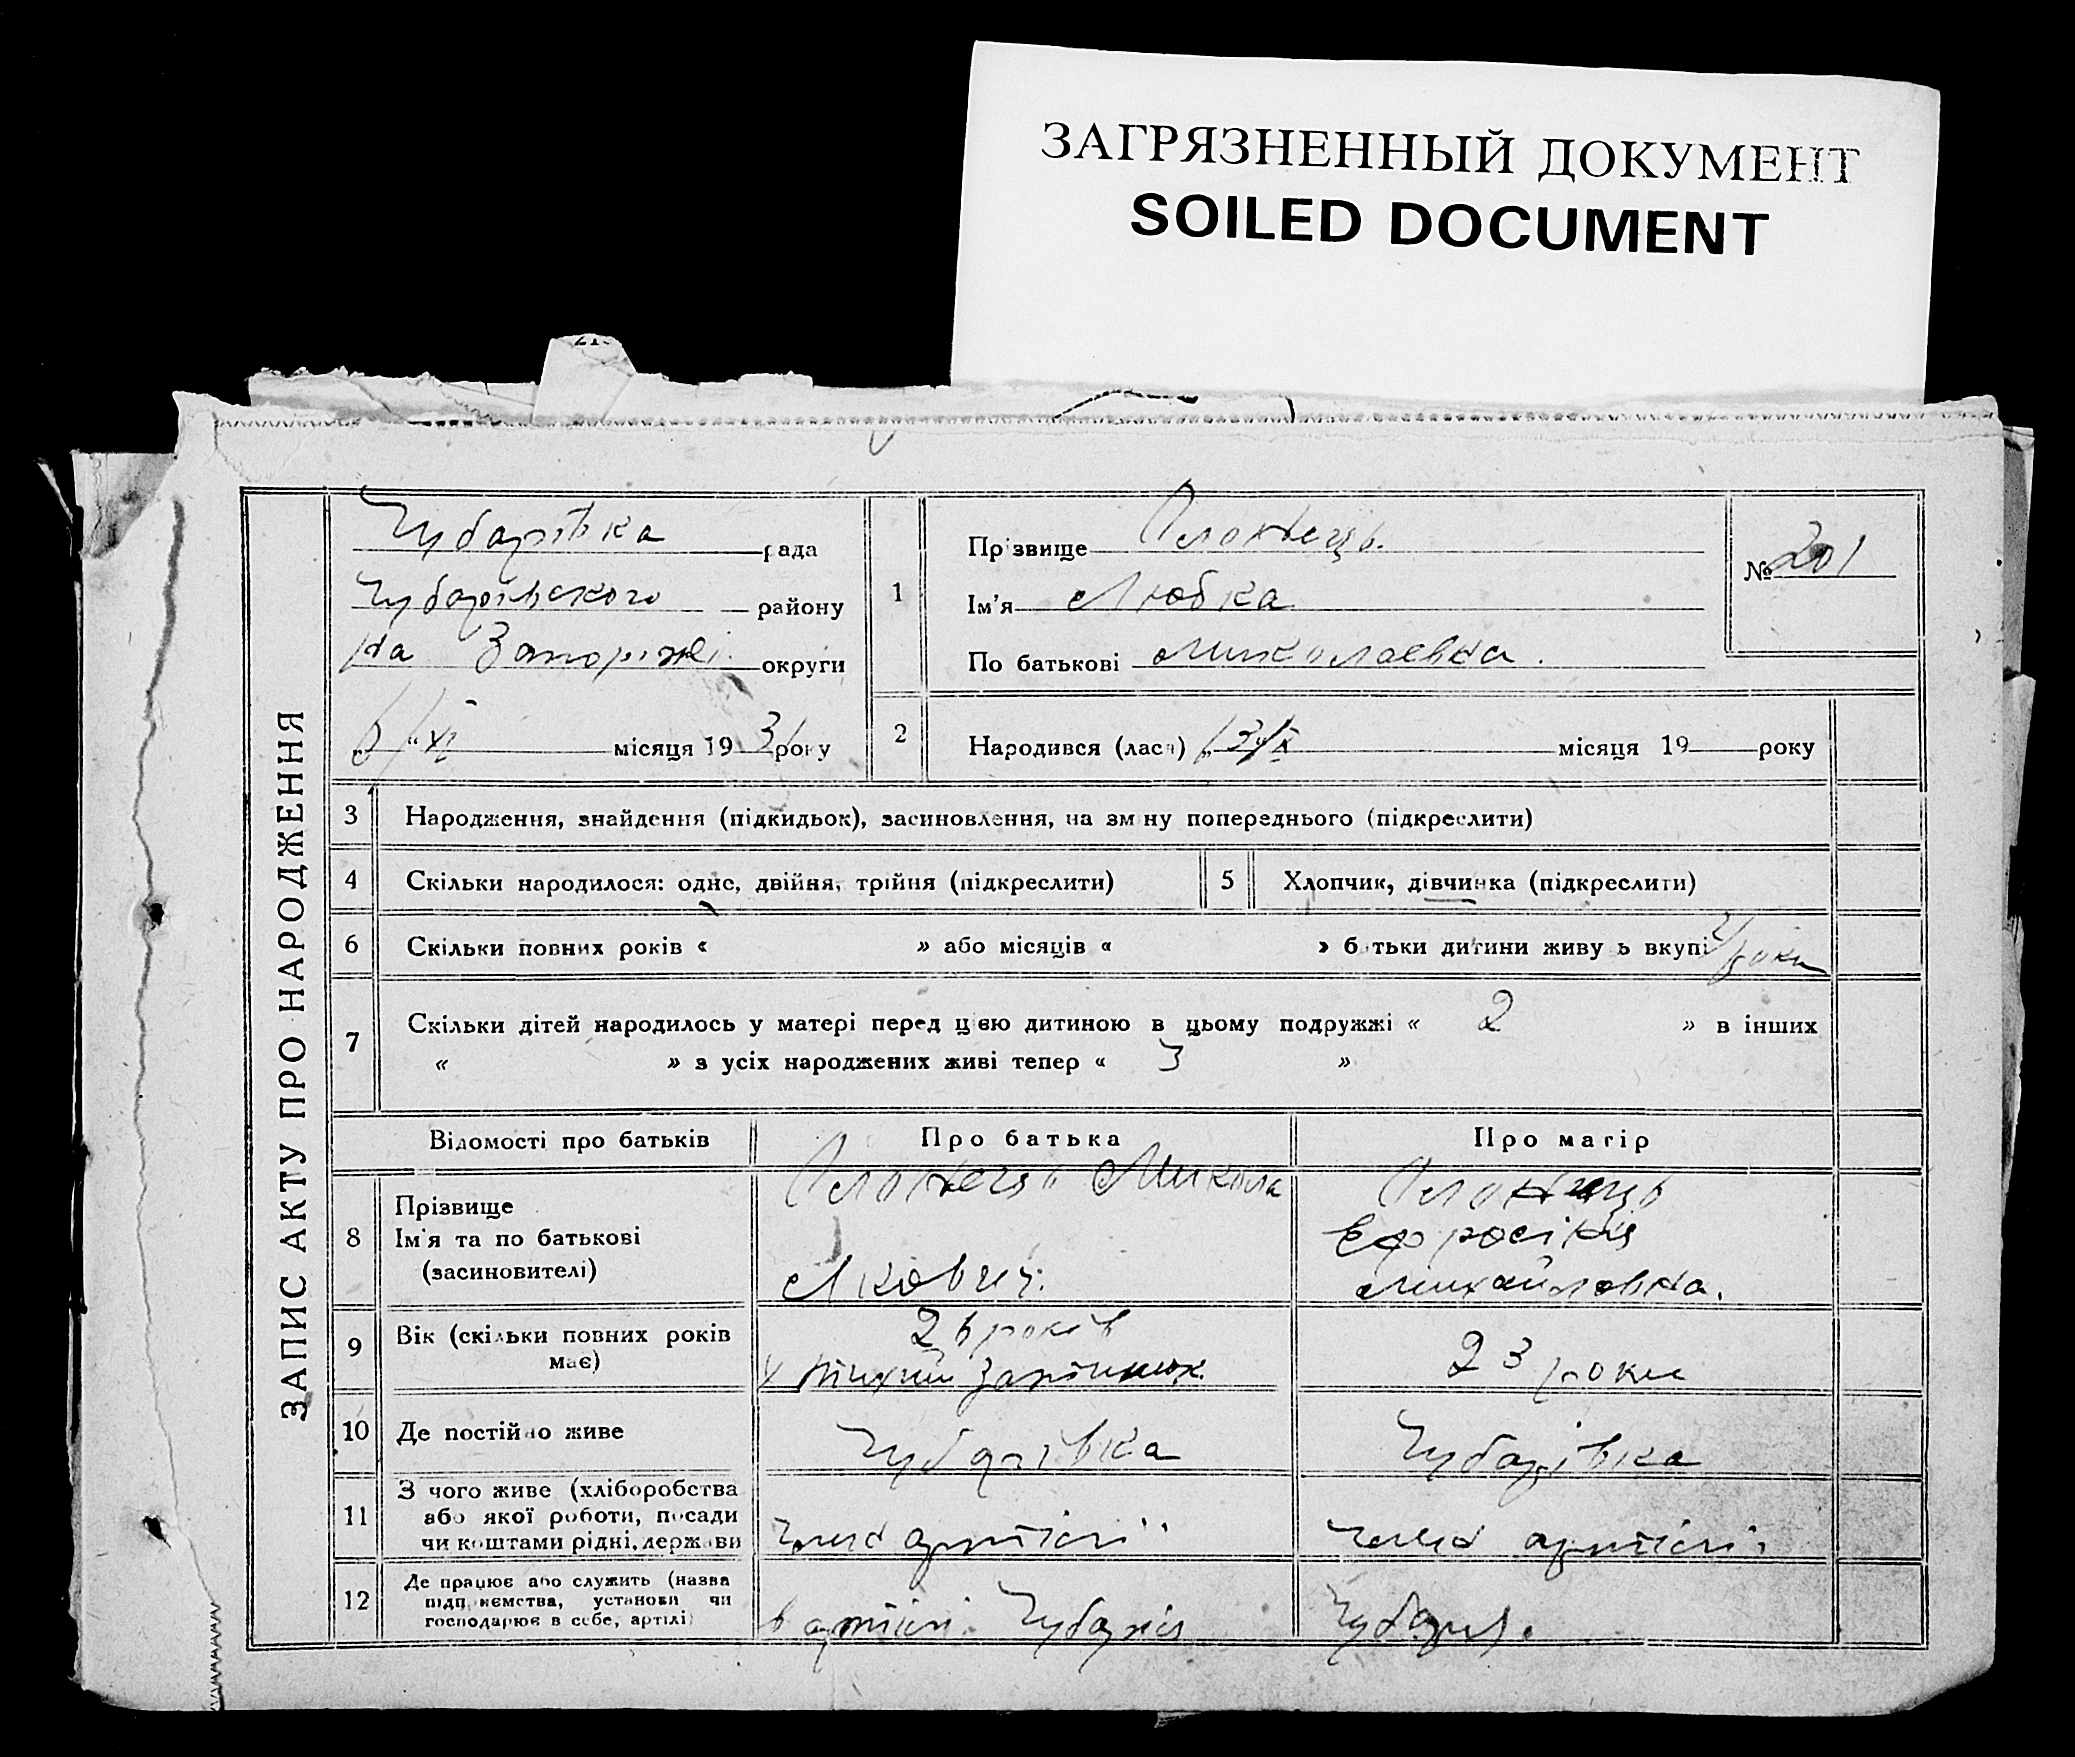 ЗАГРЯЗНЕННЫЙ ДОКУМЕНТ
SOILED DOCUMENT
ЗАПИС АКТУ ПРО НАРОДЖЕННЯ
Чубарівка рада
Чубарівського району
на Запоріжжі округи
6/XI місяця 1931 року
1
Прізвище
Ім'я Любка
По батькові Миколаевна.
№ 201
2
Народився (лася) „13/X місяця 19 року
3 Народження, знайдення (підкидьок), засиновлення, на зміну попереднього (підкреслити)
4 Скільки народилося: одне, двійня, трійня (підкреслити)
5 Хлопчик, дівчинка (підкреслити)
6 Скільки повних років « » або місяців « » батьки дитини живуть вкупі роки
7 Скільки дітей народилось у матері перед цією дитиною в цьому подружжі « 2 » в інших
« » з усіх народжених живі тепер « 3 »
Відомості про батьків
Про батька
Про матір
8 Прізвище
Ім'я та по батькові
(засиновителі)
Микола
Якович.
Ефросінія
Михайловна.
9 Вік (скільки повних років має)
26 років
23 роки
10 Де постійно живе
Чубарівка
Чубарівка
11 З чого живе (хліборобства
або якої роботи, посади
чи коштами рідні, держави
член артілі
член артілі
12 Де працює або служить (назва
підприємства, установи чи
господарює в себе, артілі)
в артілі Чубарія
Чубаря.